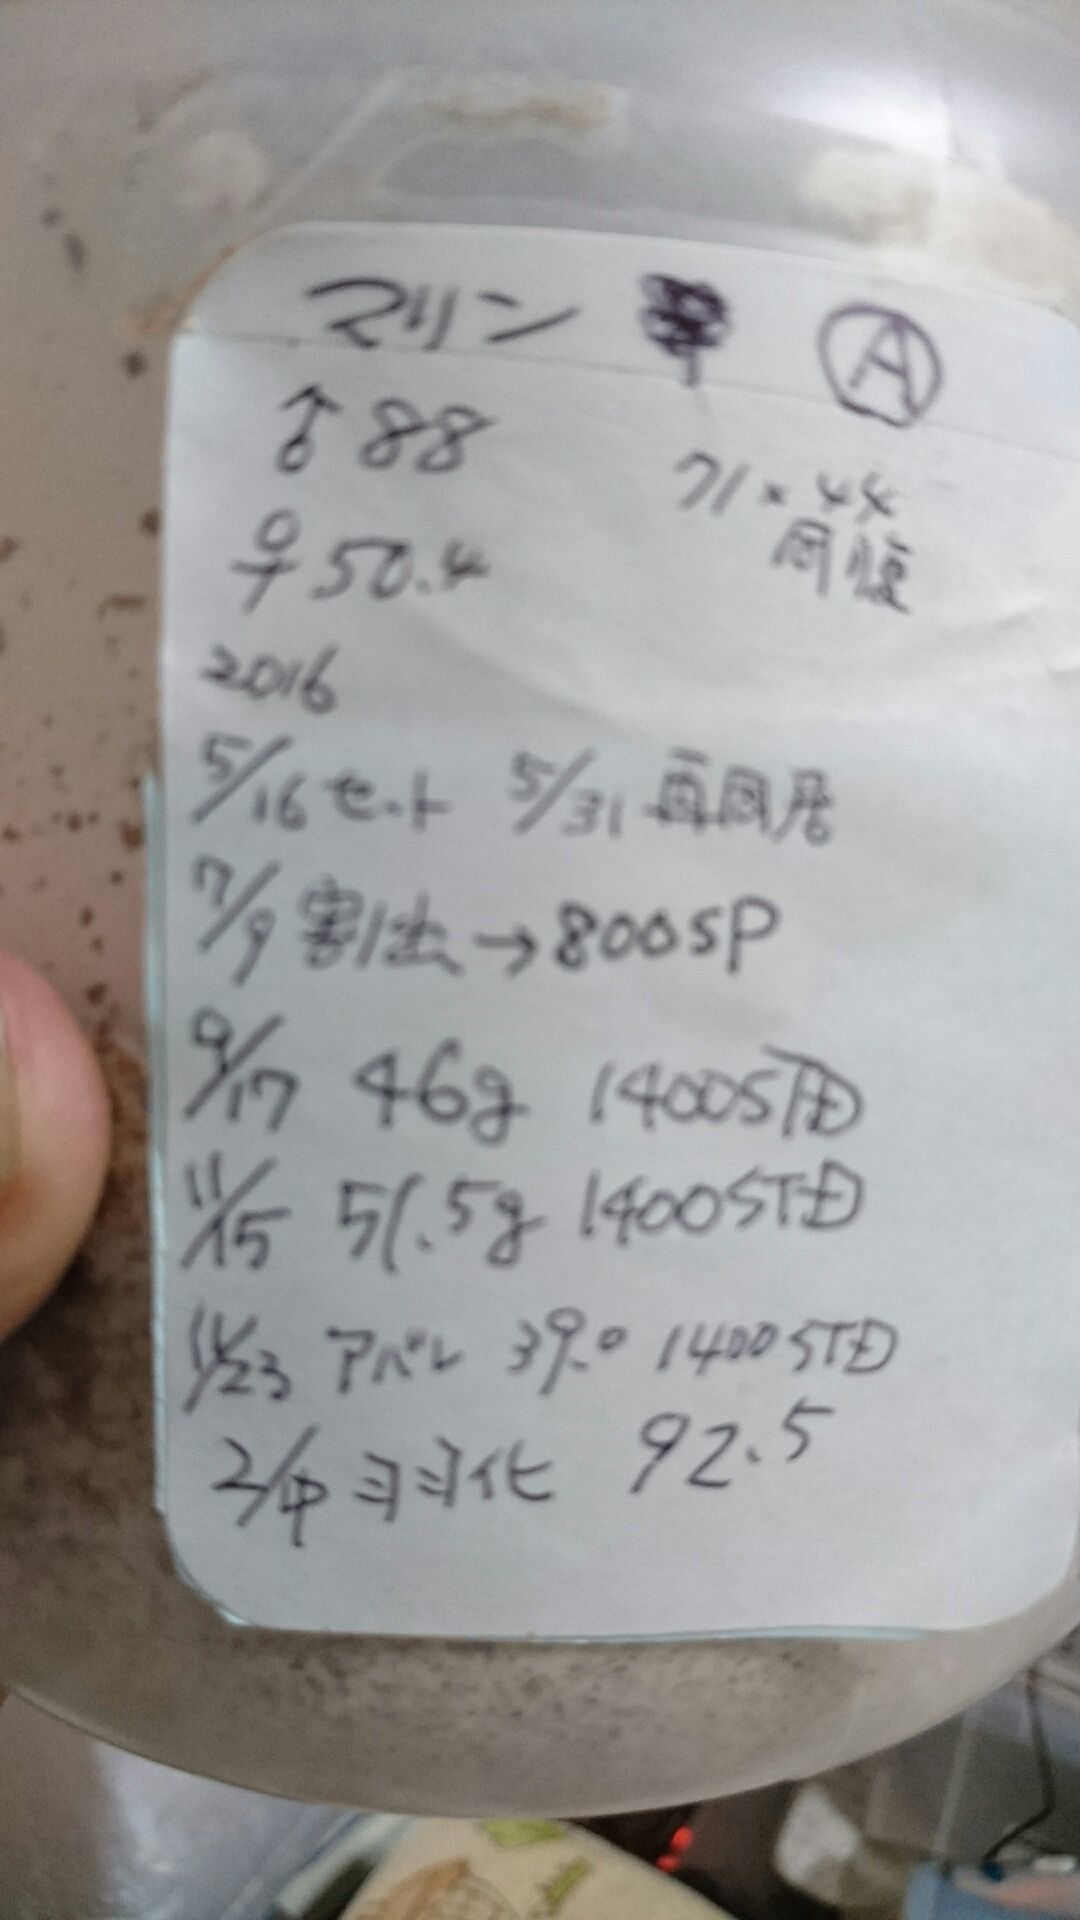 マリン Ⓐ
♂88
71×44
♀50.4
同腹
2016
5/16 セット 5/31 再同居
7/9 割出→800SP
9/17 46g 1400STD
11/15 51.5g 1400STD
11/23 アバレ 39.0 1400STD
2/中 羽化 92.5